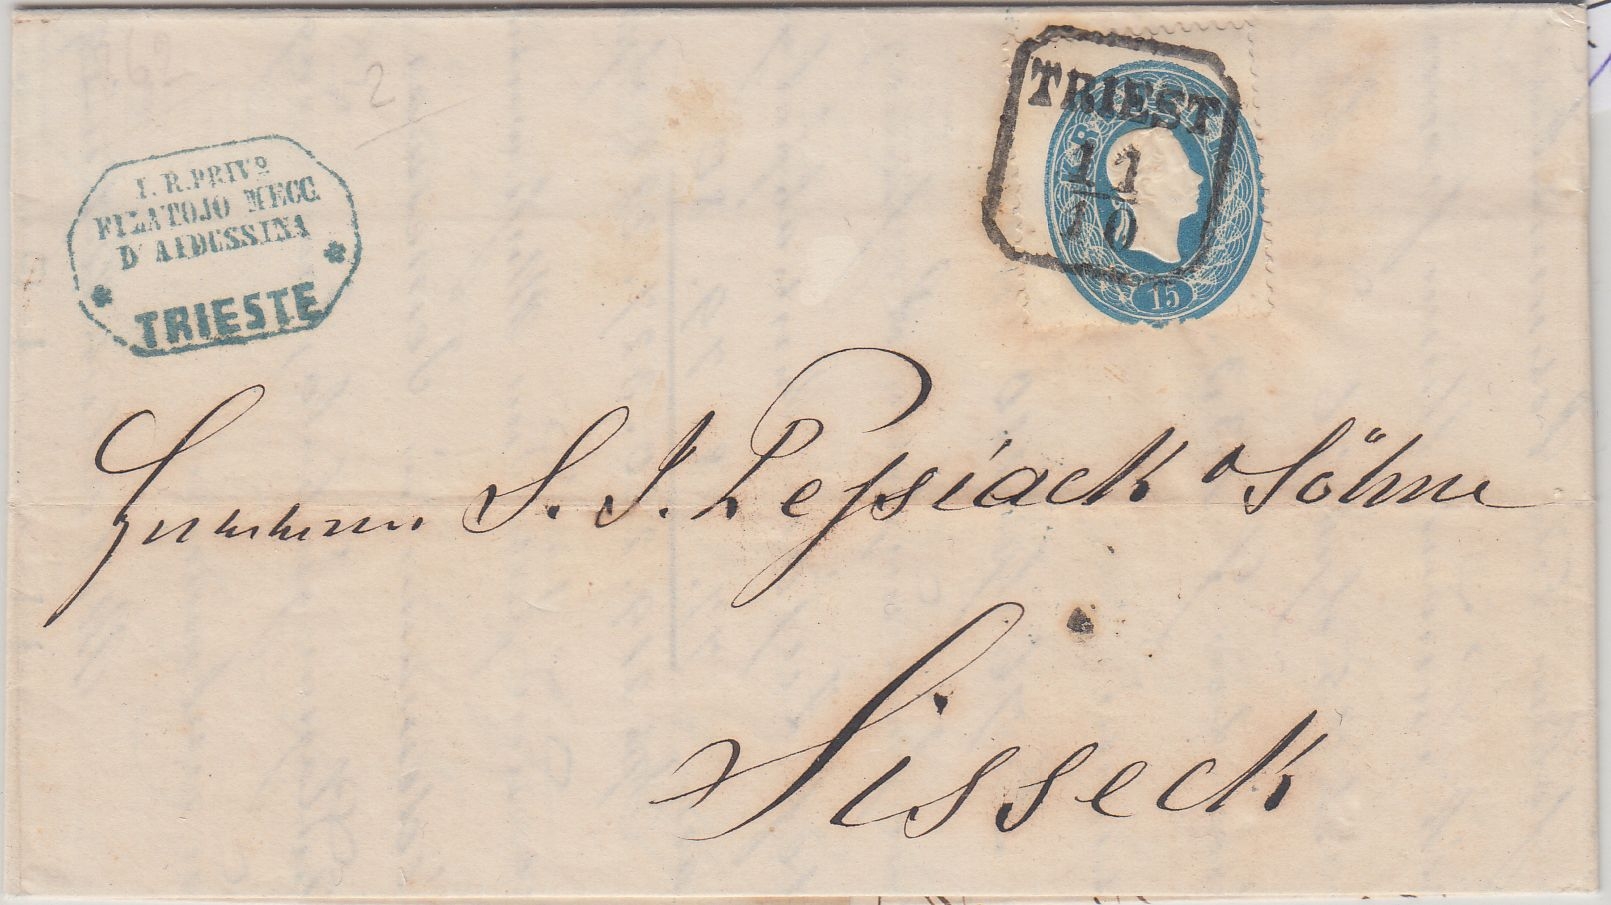 62
2
I. R. PRIVº
FILATOJO MECC.
D'AIDUSSINA
TRIESTE
TRIEST
11
10
KR
15
S. J. Pejsiack & Söhne
Sisseck